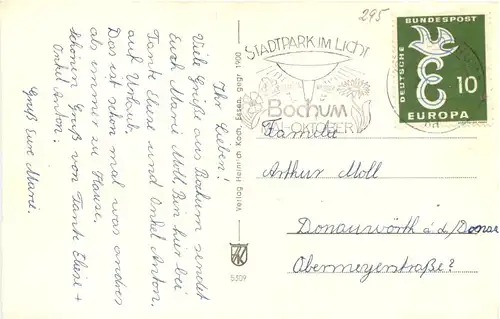 Ihr Lieben!
Viele Grüße aus Bochum sendet
Euch Marie Moll Bin hier bei
Tante Elise und Onkel Anton.
auf Urlaub.
Das ist schon mal was andres
als immer zu Hause.
schönen Gruß von Tante Elise +
Onkel Anton.
Gruß Eure Marie.
Verlag Heinrich Koch, Essen, gegr. 1900
5309
295
STADTPARK IM LICHT
Bochum
OKTOBER
DEUTSCHE
BUNDESPOST
E
10
EUROPA
Familie
Arthur Moll
Donauwörth a/d/Donau
Obermeyerstraße?